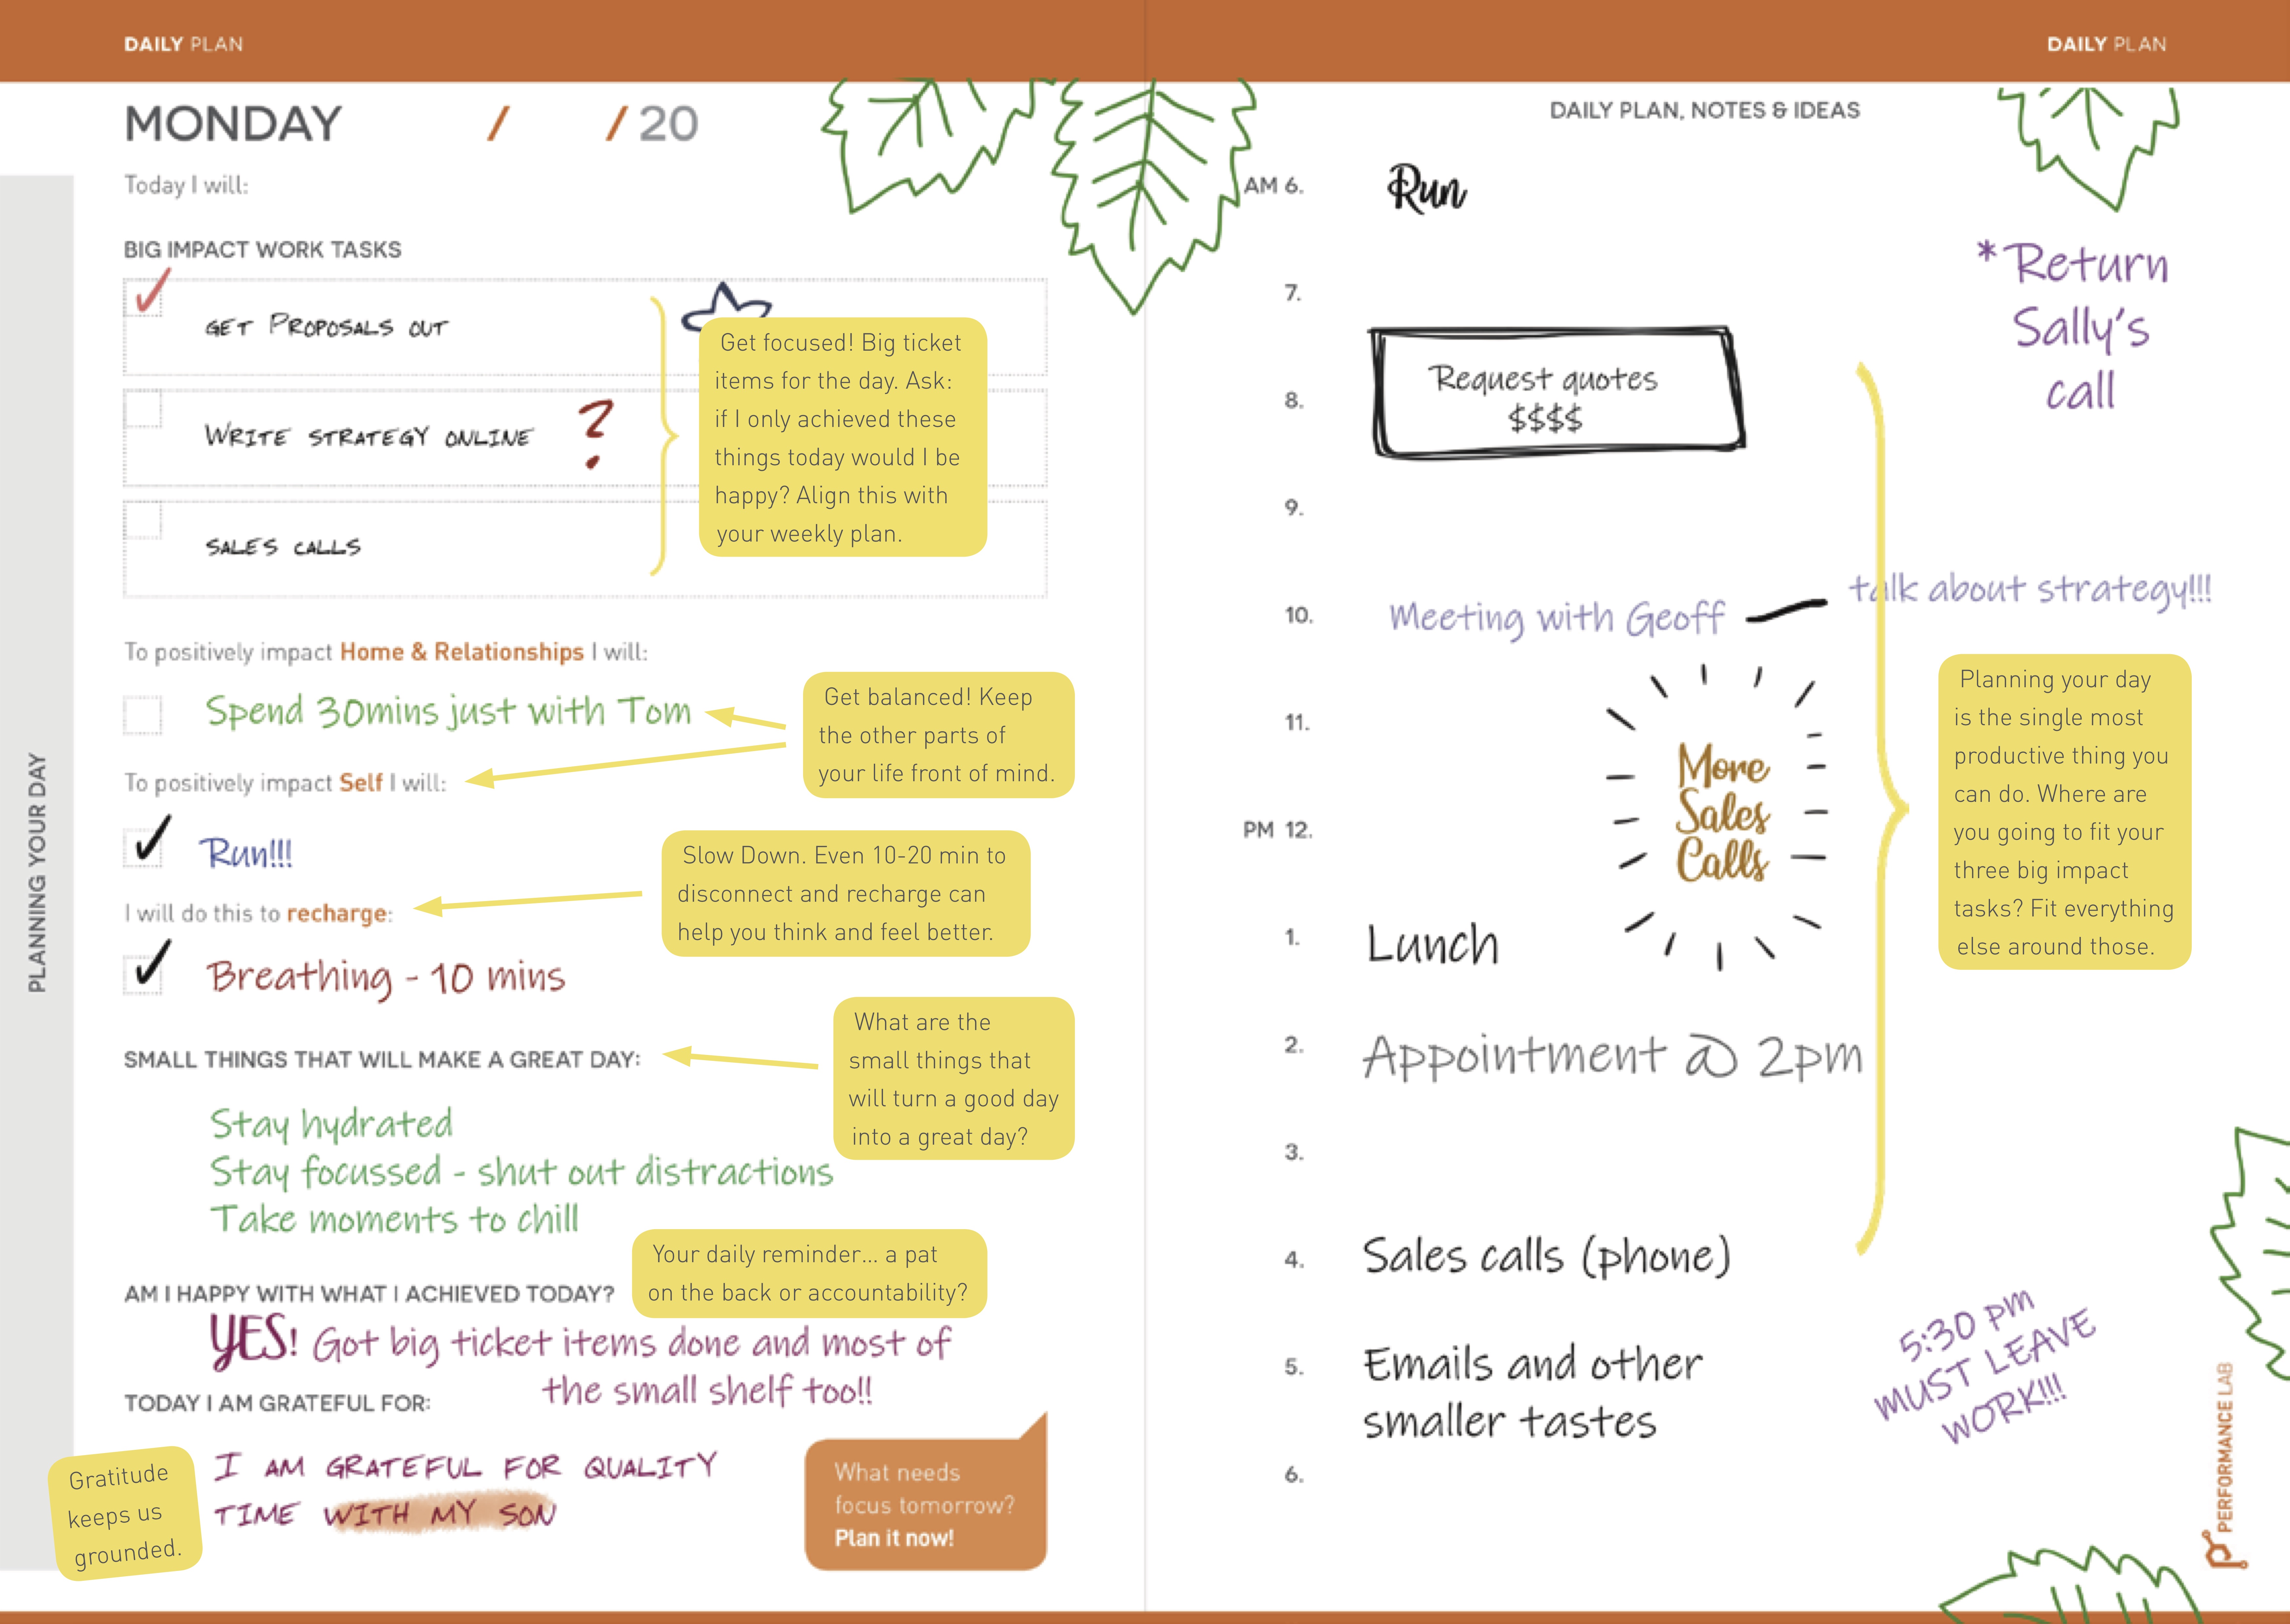 DAILY PLAN
DAILY PLAN
MONDAY / / 20
Today I will:
BIG IMPACT WORK TASKS
GET PROPOSALS OUT
WRITE STRATEGY ONLINE ?
SALES CALLS
Get focused! Big ticket
items for the day. Ask:
if I only achieved these
things today would I be
happy? Align this with
your weekly plan.
To positively impact Home & Relationships I will:
Spend 30mins just with Tom
Get balanced! Keep
the other parts of
your life front of mind.
To positively impact Self I will:
Run!!!
Slow Down. Even 10-20 min to
disconnect and recharge can
help you think and feel better.
I will do this to recharge:
Breathing - 10 mins
What are the
small things that
will turn a good day
into a great day?
SMALL THINGS THAT WILL MAKE A GREAT DAY:
Stay hydrated
Stay focussed - shut out distractions
Take moments to chill
Your daily reminder... a pat
on the back or accountability?
AM I HAPPY WITH WHAT I ACHIEVED TODAY?
YES! Got big ticket items done and most of
the small shelf too!!
TODAY I AM GRATEFUL FOR:
I AM GRATEFUL FOR QUALITY
TIME WITH MY SON
Gratitude
keeps us
grounded.
What needs
focus tomorrow?
Plan it now!
PLANNING YOUR DAY
DAILY PLAN, NOTES & IDEAS
AM 6. Run
*Return
Sally's
call
7.
Request quotes
$$$$
8.
9.
10. Meeting with Geoff — talk about strategy!!!
11.
More
Sales
Calls
PM 12.
Planning your day
is the single most
productive thing you
can do. Where are
you going to fit your
three big impact
tasks? Fit everything
else around those.
1. Lunch
2. Appointment @ 2pm
3.
4. Sales calls (phone)
5. Emails and other
smaller tastes
5:30 pm
MUST LEAVE
WORK!!!
6.
PERFORMANCE LAB